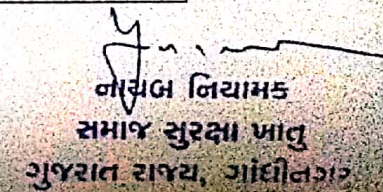 નાયબ નિયામક
સમાજ સુરક્ષા ખાતુ
ગુજરાત રાજય, ગાંધીનગર